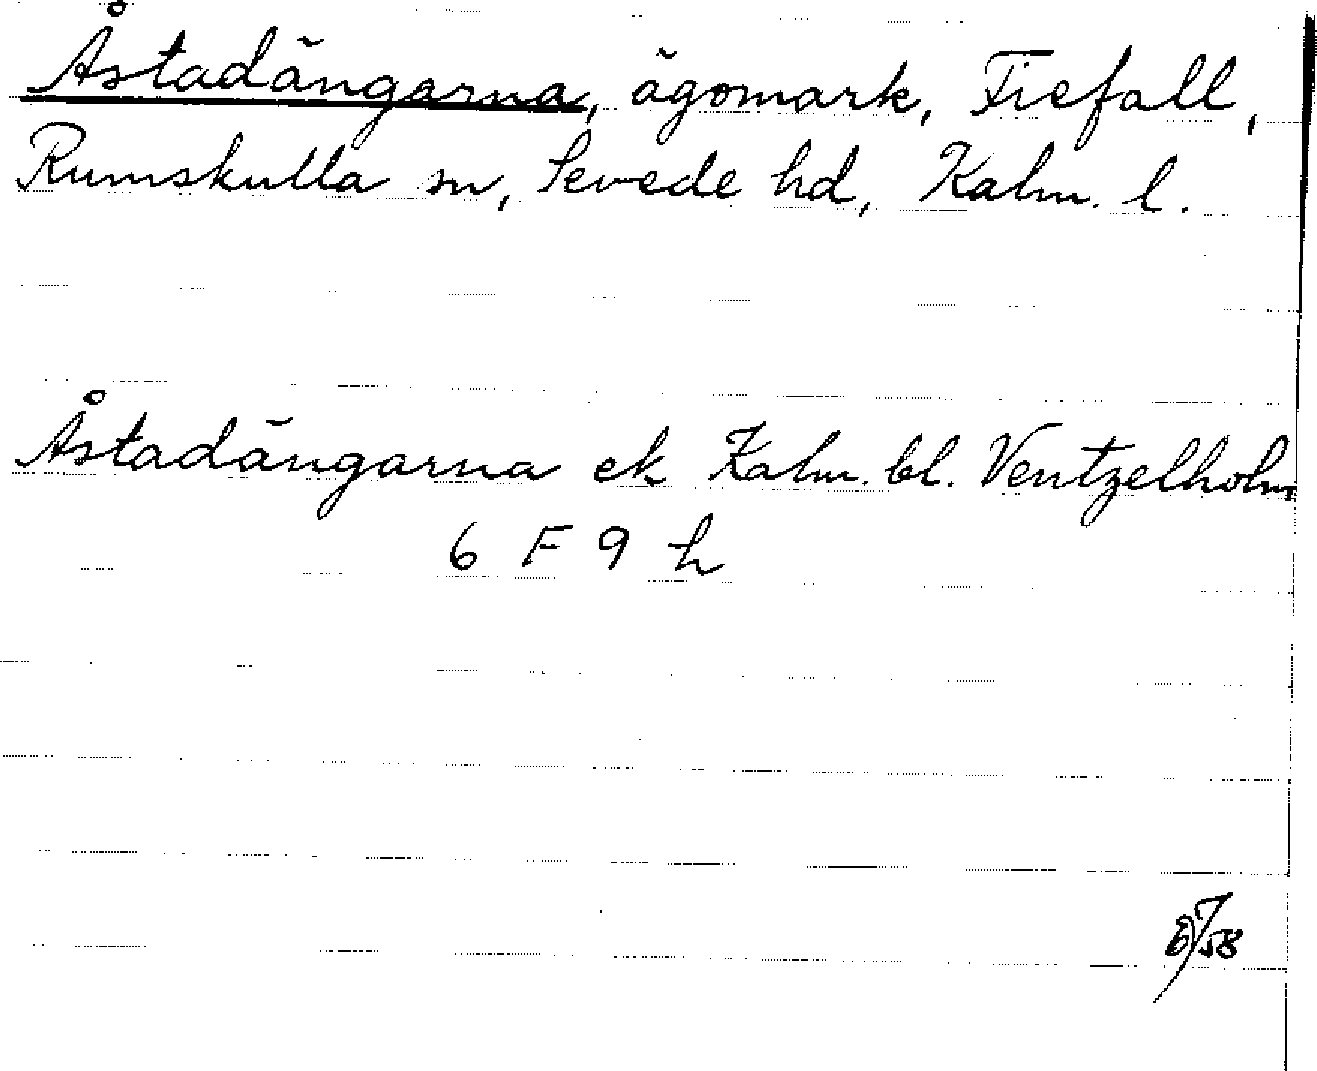 Åstadängarna, ägomark, Fiefall,
Rumskulla sn, Sevede hd, Kalm. l.
Åstadängarna ek Kalm. bl. Ventzelholm
6 F 9 h